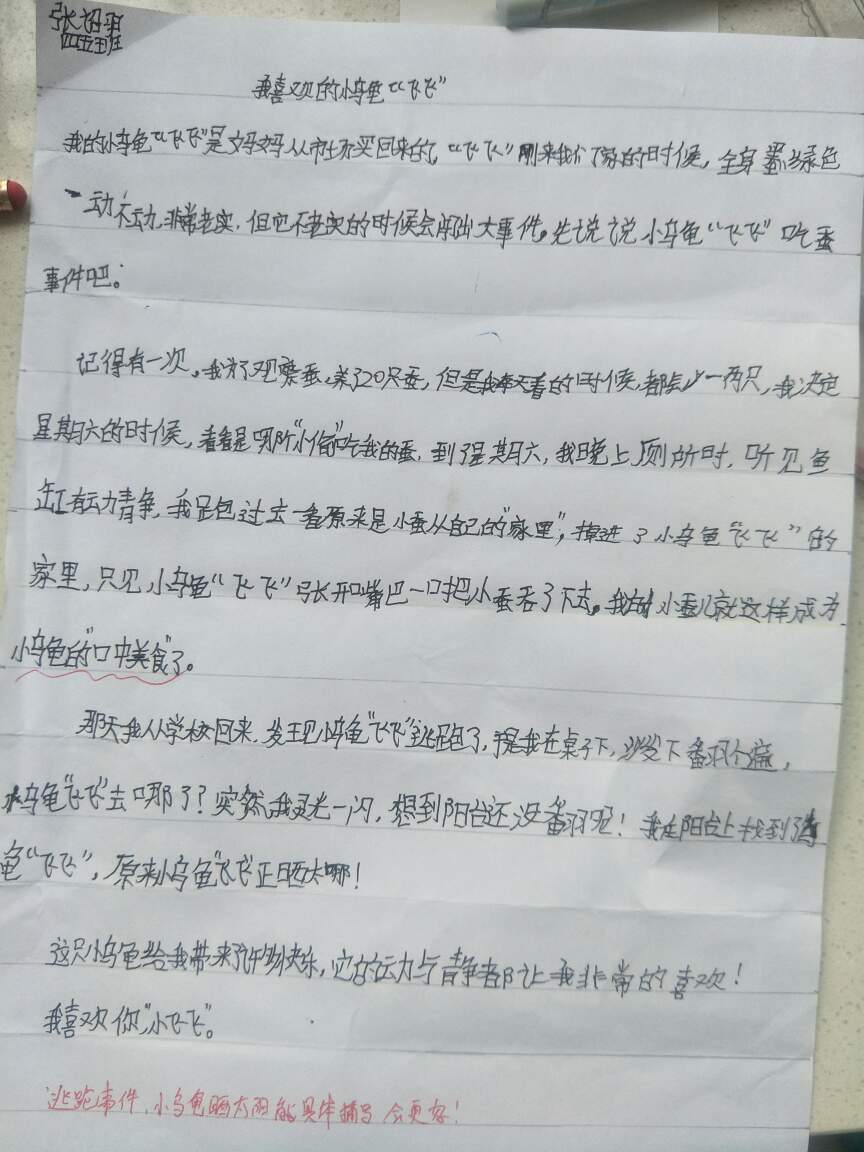 张
四五班
我喜欢的小乌龟“飞飞”
我的小乌龟“飞飞”是妈妈从市场买回来的,“飞飞”刚来我们家的时候,全身墨绿色
一动不动,非常老实,但它不老实的时候会闹出大事件。先说说小乌龟“飞飞”吃蚕
事件吧。
记得有一次,我为了观察蚕,养了20只蚕,但是我每天看的时候,都会少一两只,我决定
星期六的时候,看看是哪个“小偷”吃我的蚕,到了星期六,我晚上厕所时,听见鱼
缸有动静,我跑过去一看原来是小蚕从自己的“家里”,掉进了小乌龟“飞飞”的
家里,只见小乌龟“飞飞”张开嘴巴一口把小蚕吞了下去。我的小蚕儿就这样成为
小乌龟的“口中美食”了。
那天我从学校回来,发现小乌龟“飞飞”逃跑了,于是我在桌子下,沙发下翻个遍,
小乌龟“飞飞”去哪了?突然我灵光一闪,想到阳台还没翻呢!我在阳台上找到了乌
龟“飞飞”,原来小乌龟“飞飞”正晒太哪!
这只小乌龟给我带来了许多快乐,它的动与静都让我非常的喜欢!
我喜欢你,“小飞飞”。
逃跑事件,小乌龟晒太阳能具体描写会更好!